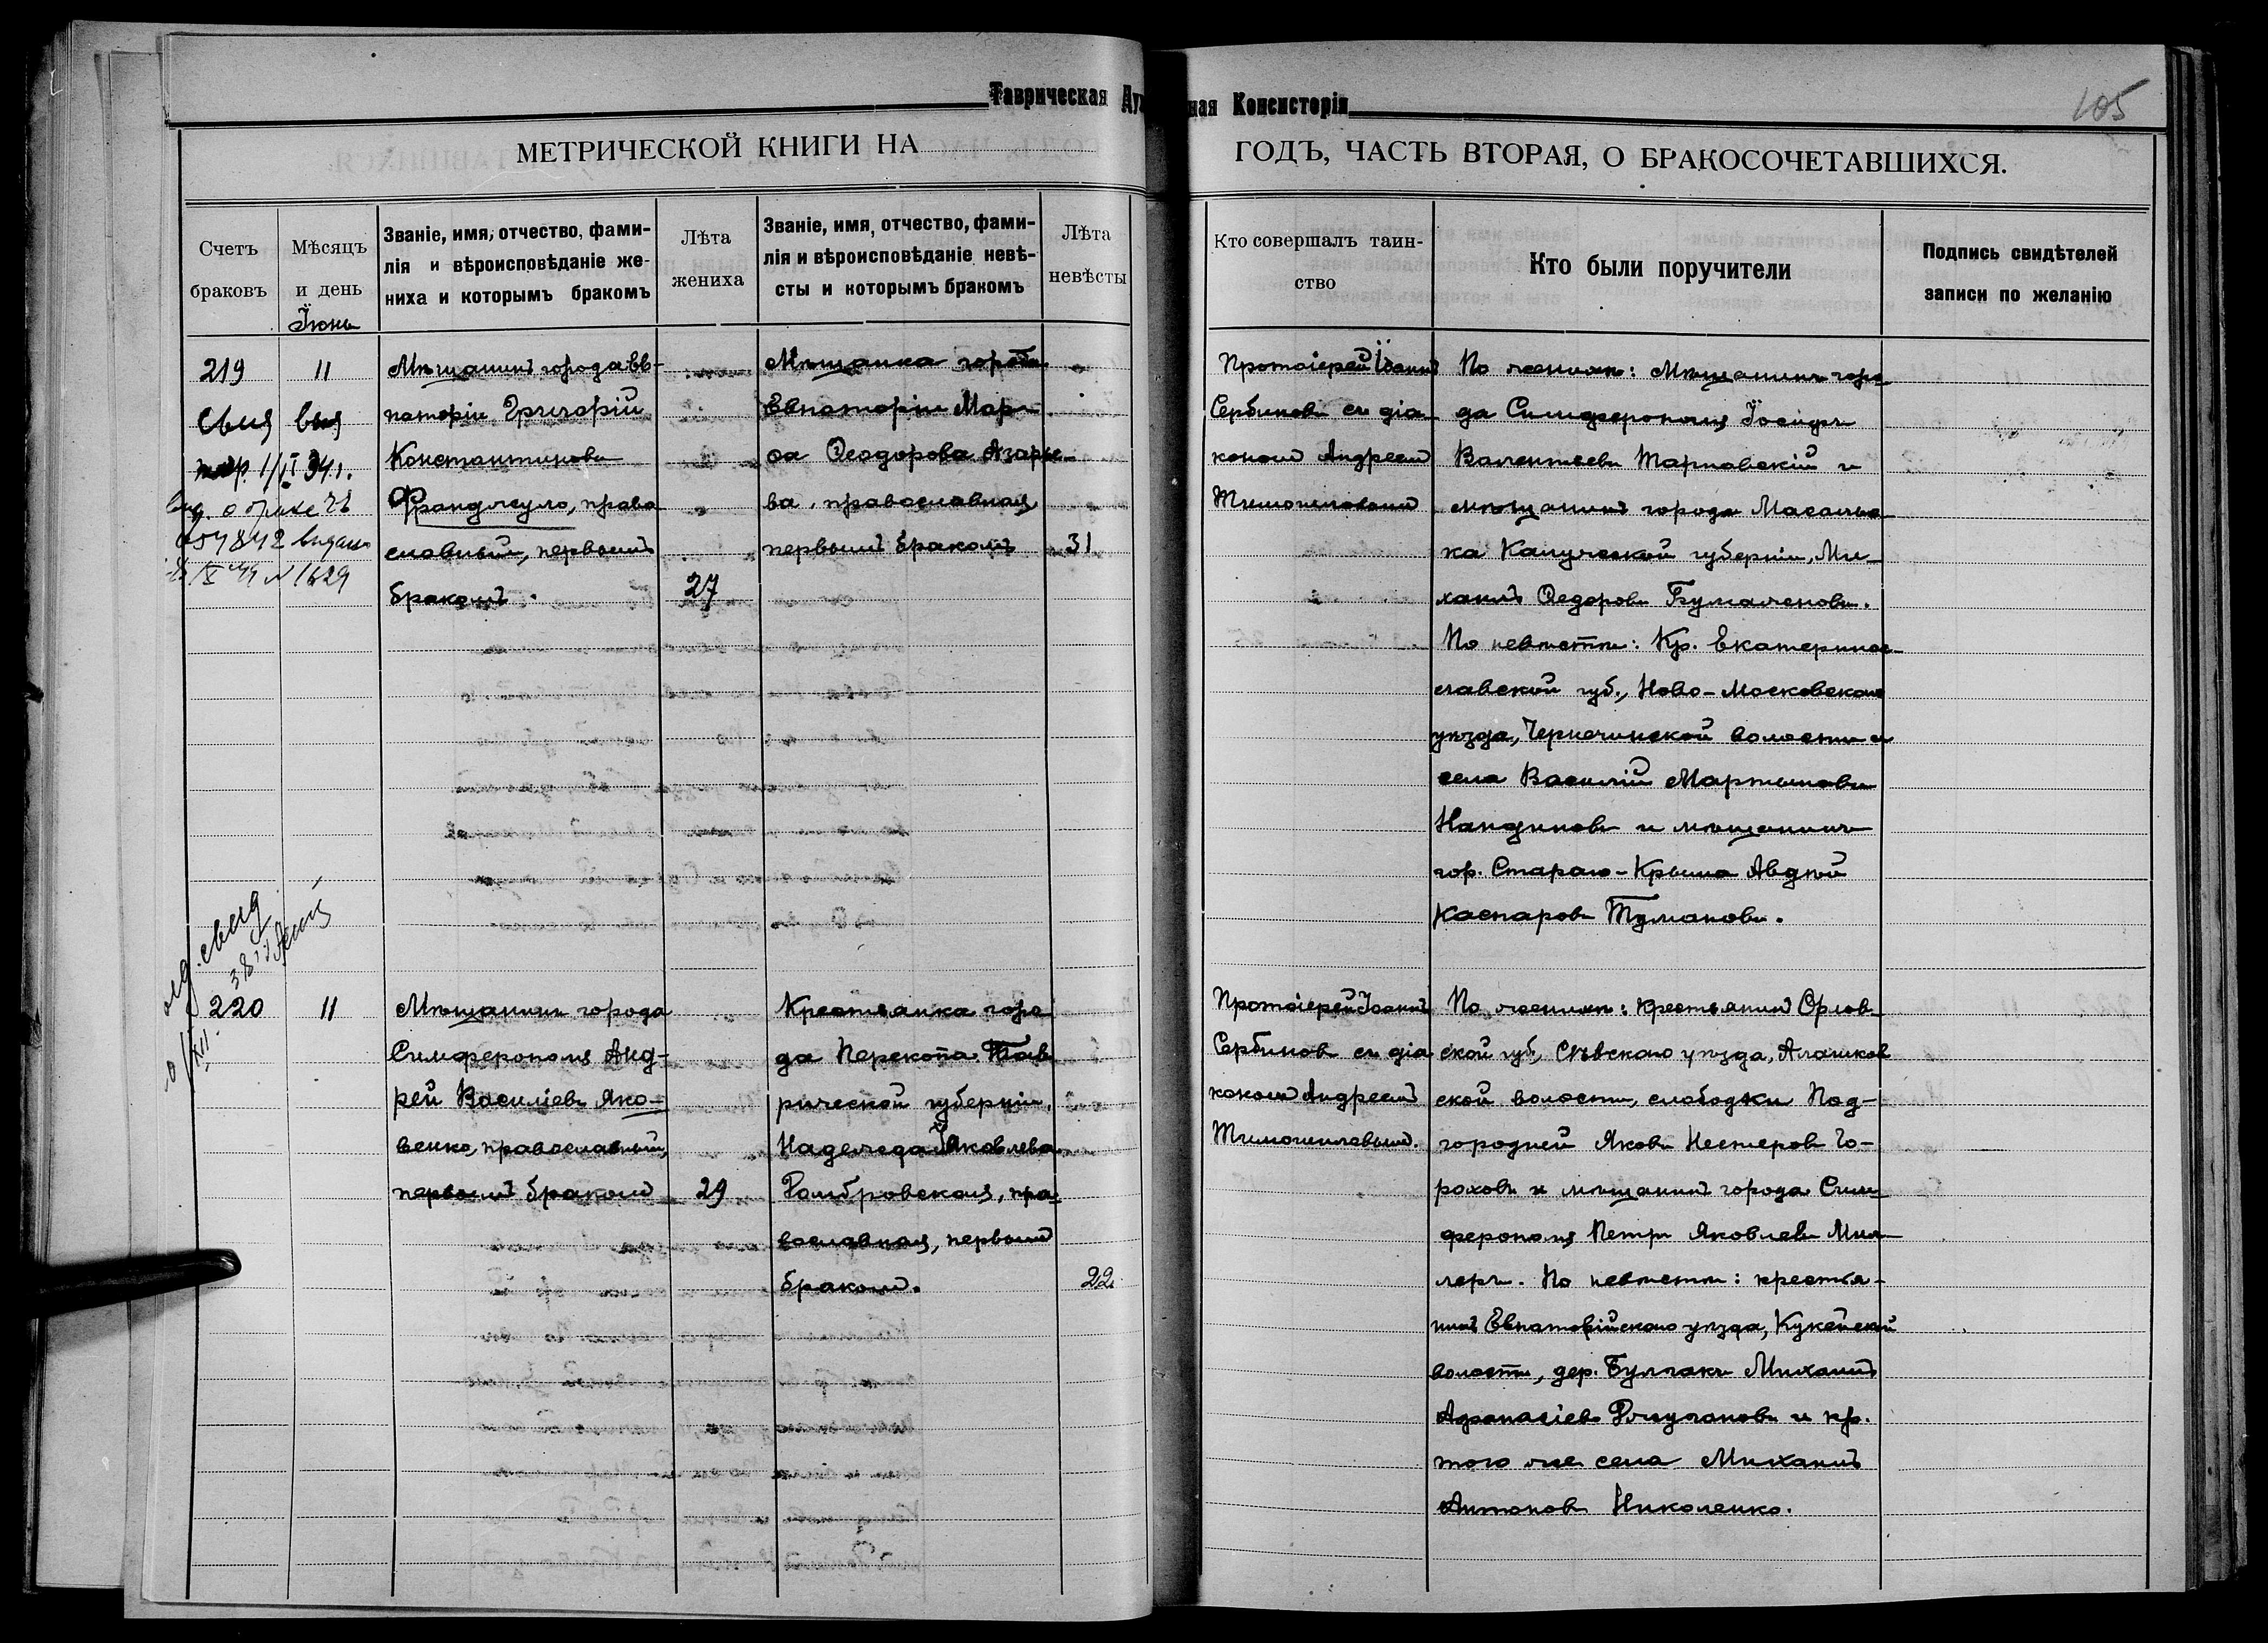 Таврическая Ду ная Консисторія
105
МЕТРИЧЕСКОЙ КНИГИ НА ГОДЪ, ЧАСТЬ ВТОРАЯ, О БРАКОСОЧЕТАВШИХСЯ.
Счетъ
браковъ
Мѣсяцъ
и день
Іюнь
Званіе, имя, отчество, фами-
лія и вѣроисповѣданіе же-
ниха и которымъ бракомъ
Лѣта
жениха
Званіе, имя, отчество, фами-
лія и вѣроисповѣданіе невѣ-
сты и которымъ бракомъ
Лѣта
невѣсты
Кто совершалъ таин-
ство
Кто были поручители
Подпись свидѣтелей
записи по желанію
219
11
о браке
054842
N 1629
Мѣщанинъ города Ев-
паторіи Григорій
Константиновъ
Франджуло, право
славный, первымъ
бракомъ.
27
Мѣщанка города
Евпаторіи Мар-
ѳа Ѳеодорова Азарье-
ва, православная
первымъ бракомъ
31
Протоіерей Іоаннъ
Сербиновъ съ діа-
кономъ Андреемъ
По женихѣ: Мѣщанинъ горо-
да Симферополя Іосифъ
Валентьевъ Тарнавскій и
мѣщанинъ города Масальс-
ка Калужской губерніи, Ми-
хаилъ Ѳедоровъ Бумаженовъ.
По невѣстѣ: Кр. Екатеринос-
лавской губ., Ново-Московскаго
уѣзда, Черкечинской волости и
села Василій Мартыновъ
Нандиновъ и мѣщанинъ
гор. Стараго-Крыма Авдѣй
Каспаровъ Тумановъ.
свид
38
220
11
Мѣщанинъ города
Симферополя Анд-
рей Василіевъ Яко-
венко, православный,
первымъ бракомъ
29
Крестьянка горо-
да Перекопа Тав-
рической губерніи,
Надежда Яковлева
Домбровская, пра-
вославная, первымъ
бракомъ.
22
Протоіерей Іоаннъ
Сербиновъ съ діа-
кономъ Андреемъ
По женихѣ: крестьянинъ Орлов-
ской губ., Сѣвскаго уѣзда, Алешков
ской волости, слободки Под-
городней Яковъ Нестеровъ Го-
роховъ и мѣщанинъ города Сим-
ферополя Петръ Яковлевъ Мил-
леръ. По невѣстѣ: крестья-
нинъ Евпаторійскаго уѣзда, Кукейской
волости, дер. Булгакъ Михаилъ
Афанасіевъ и кр.
того же села Михаилъ
Антоновъ Николенко.